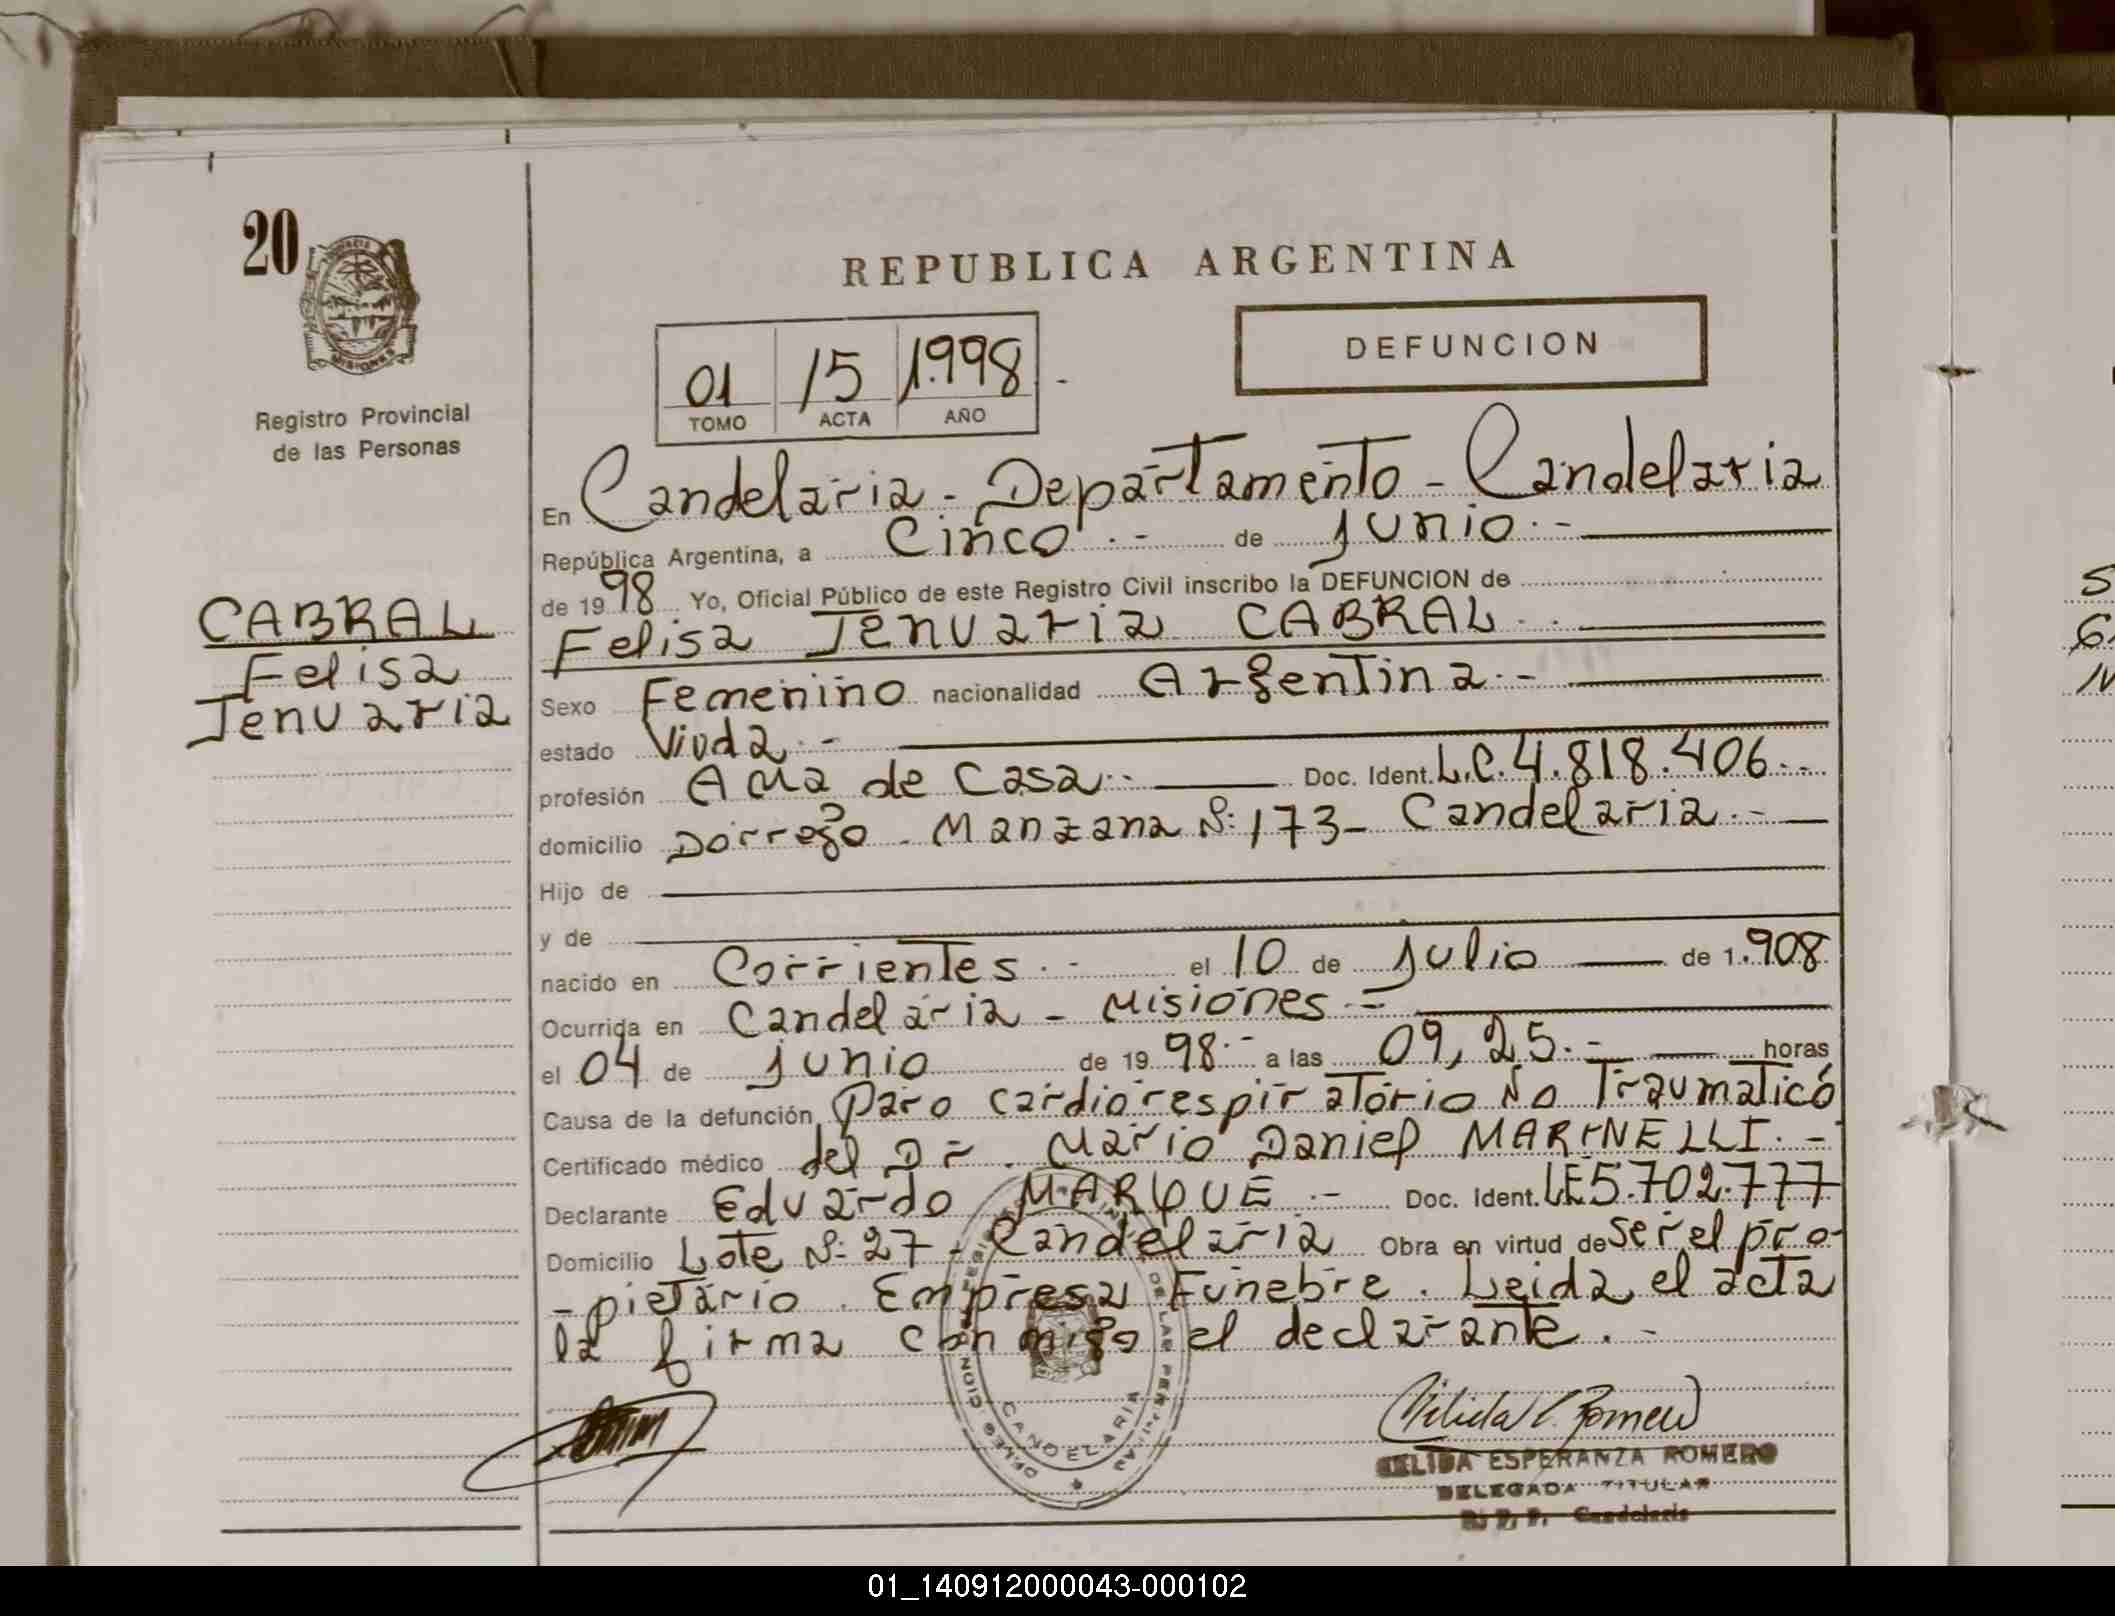 20
Registro Provincial
de las Personas
REPUBLICA ARGENTINA
DEFUNCION
01 15 1.998 -
TOMO ACTA AÑO
CABRAL
Felisa
Jenuaria
En Candelaria - Departamento - Candelaria
República Argentina, a Cinco.- de junio.-
de 19 98 Yo, Oficial Público de este Registro Civil inscribo la DEFUNCION de
Felisa Jenuaria CABRAL.
Sexo Femenino nacionalidad Argentina.-
estado Viuda.-
profesión Ama de Casa.- Doc. Ident. L.C. 4.818.406.-
domicilio Dorrego - Manzana Nº: 173 - Candelaria.-
Hijo de
y de
nacido en Corrientes.- el 10 de julio de 1.908
Ocurrida en Candelaria - Misiones =
el 04 de junio de 19 98.- a las 09,25.- horas
Causa de la defunción Paro cardiorespiratorio No Traumaticó
Certificado médico del Dr. Mario Daniel MARINELLI.-
Declarante Eduardo MARQUE.- Doc. Ident. LE 5.702.777
Domicilio Lote Nº: 27 - Candelaria Obra en virtud de ser el pro-
-pietario. Empresa Funebre. Leida el acta
la firma conmigo el declarante.-
CANDELARIA
DE LAS PER
Nélida E. Romero
NELIDA ESPERANZA ROMERO
DELEGADA TITULAR
R. P. P. Candelaria
01_140912000043-000102